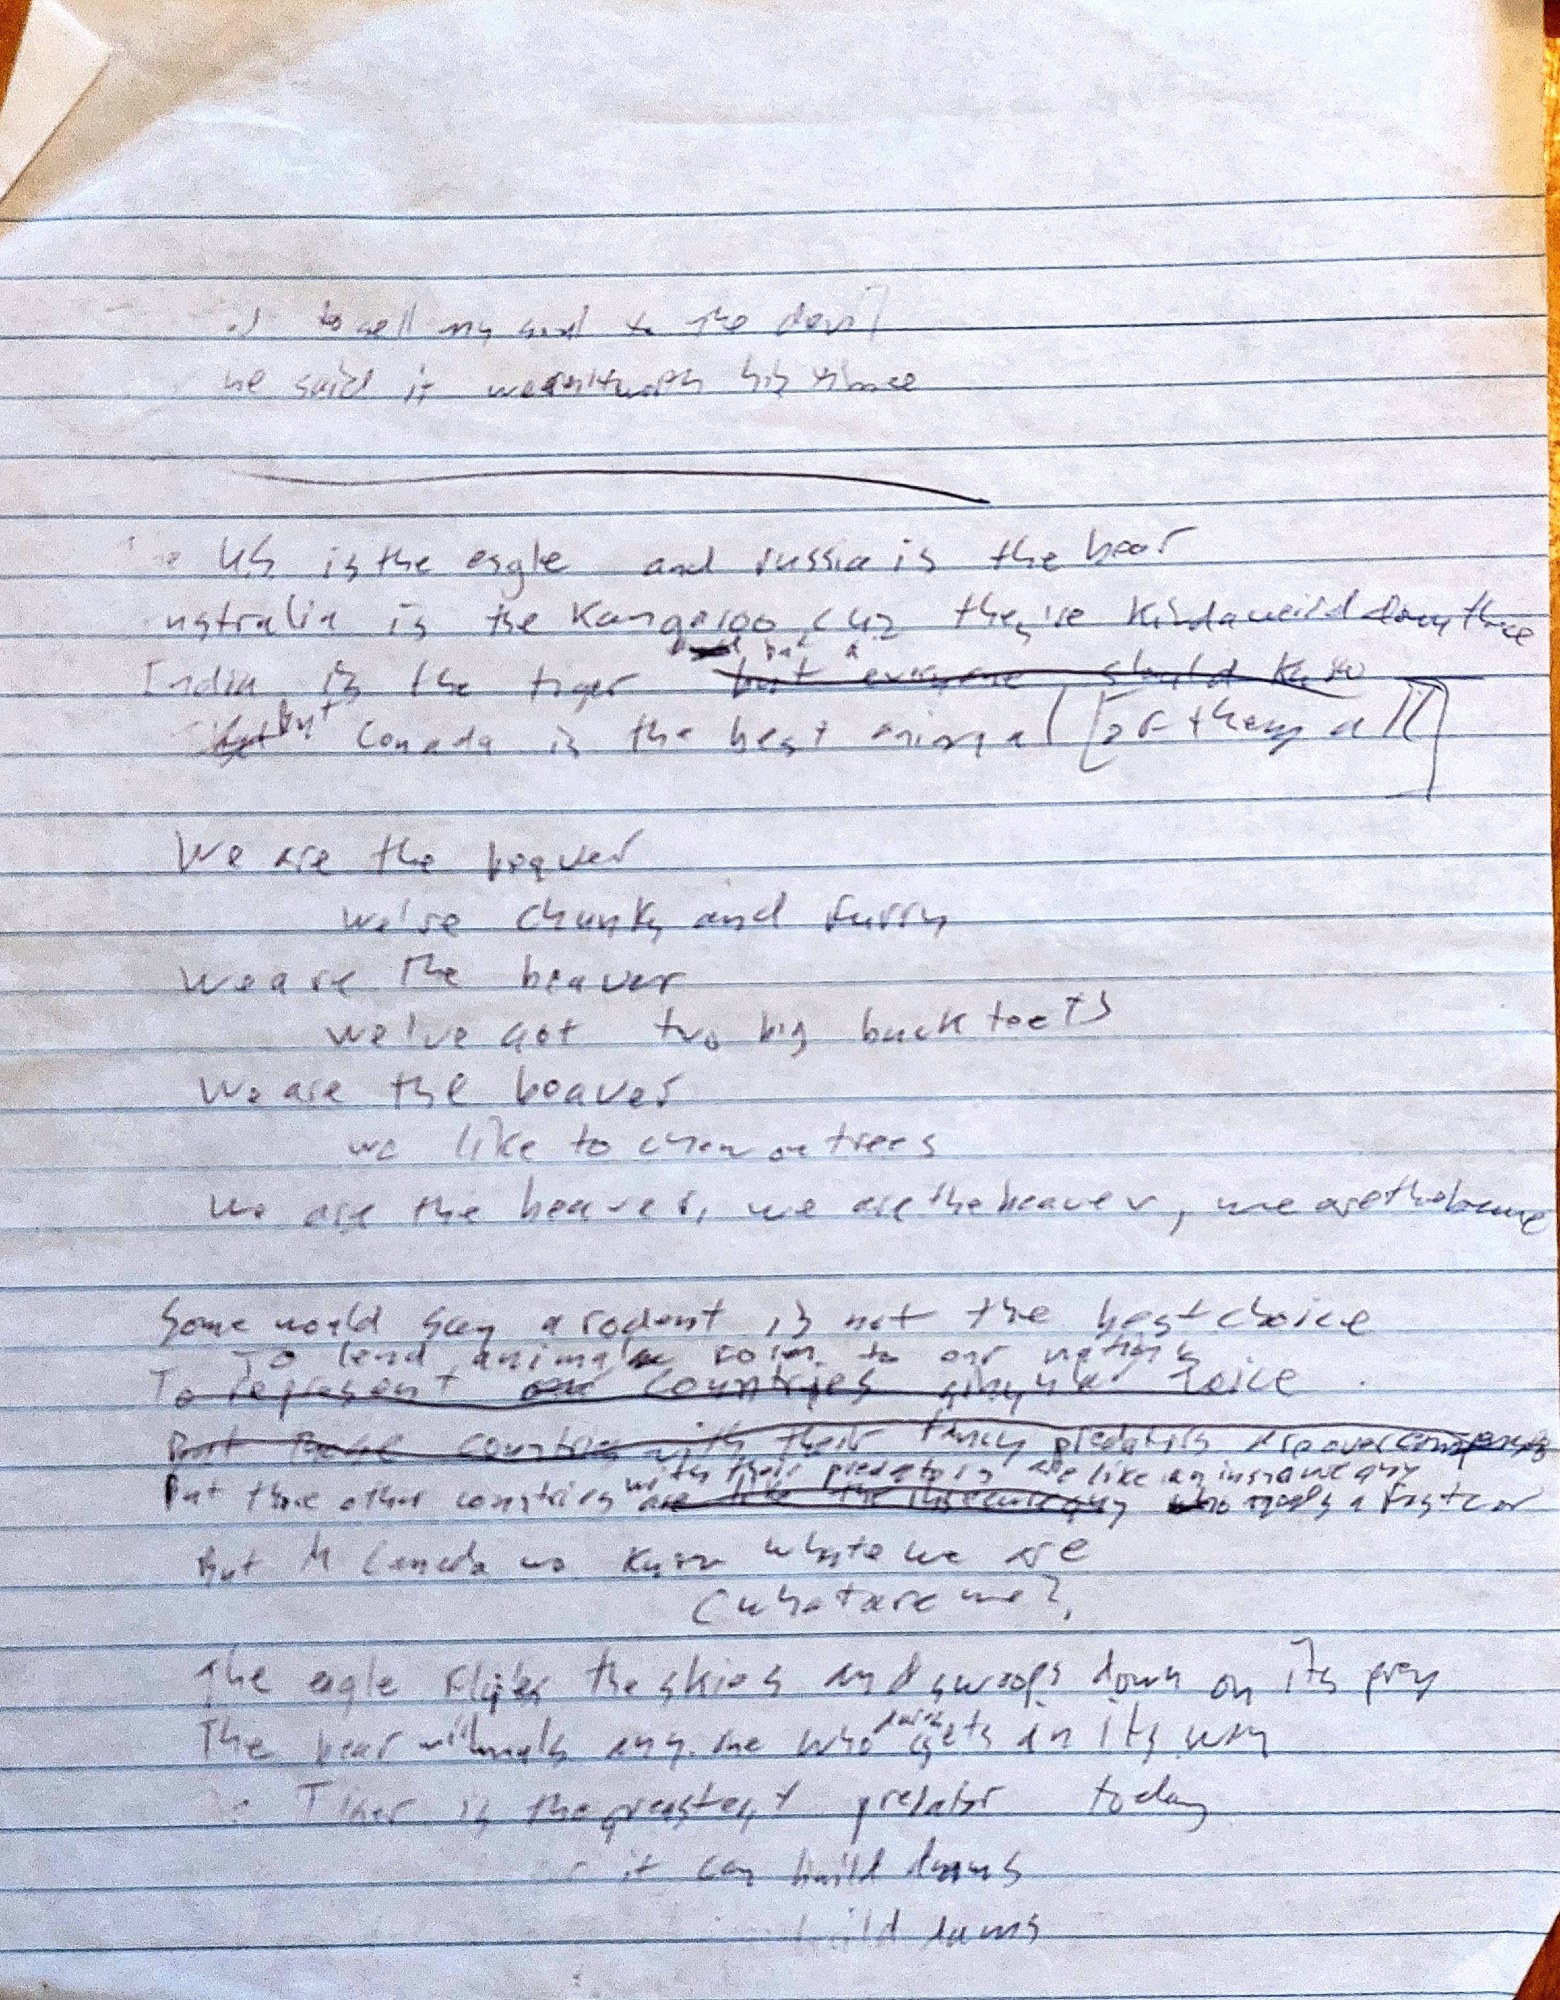 to sell my soul to the devil
he said it wasn't worth his time
US is the eagle and russia is the bear
ustralia is the Kangaroo cuz they're Kinda weird down there
India is the tiger but everyone should know
but Canada is the best animal [of them all]
We are the beaver
we're chunky and furry
We are the beaver
we've got two big buck teeth
We are the beaver
we like to chew on trees
We are the beaver, we are the beaver, we are the beaver
Some would say a rodent is not the best choice
To lend animal to our nation's
To represent our countries voice
But those countries with their fancy predators are overcompensating
with their predators are like an insecure guy
But those other countries are like the insecure guy who needs a fast car
But in Canada we know what we are
(what are we?)
The eagle flies the skies and swoops down on its prey
The bear mauls anyone who gets in its way
Tiger is the greatest predator today
it can build dams
build dams